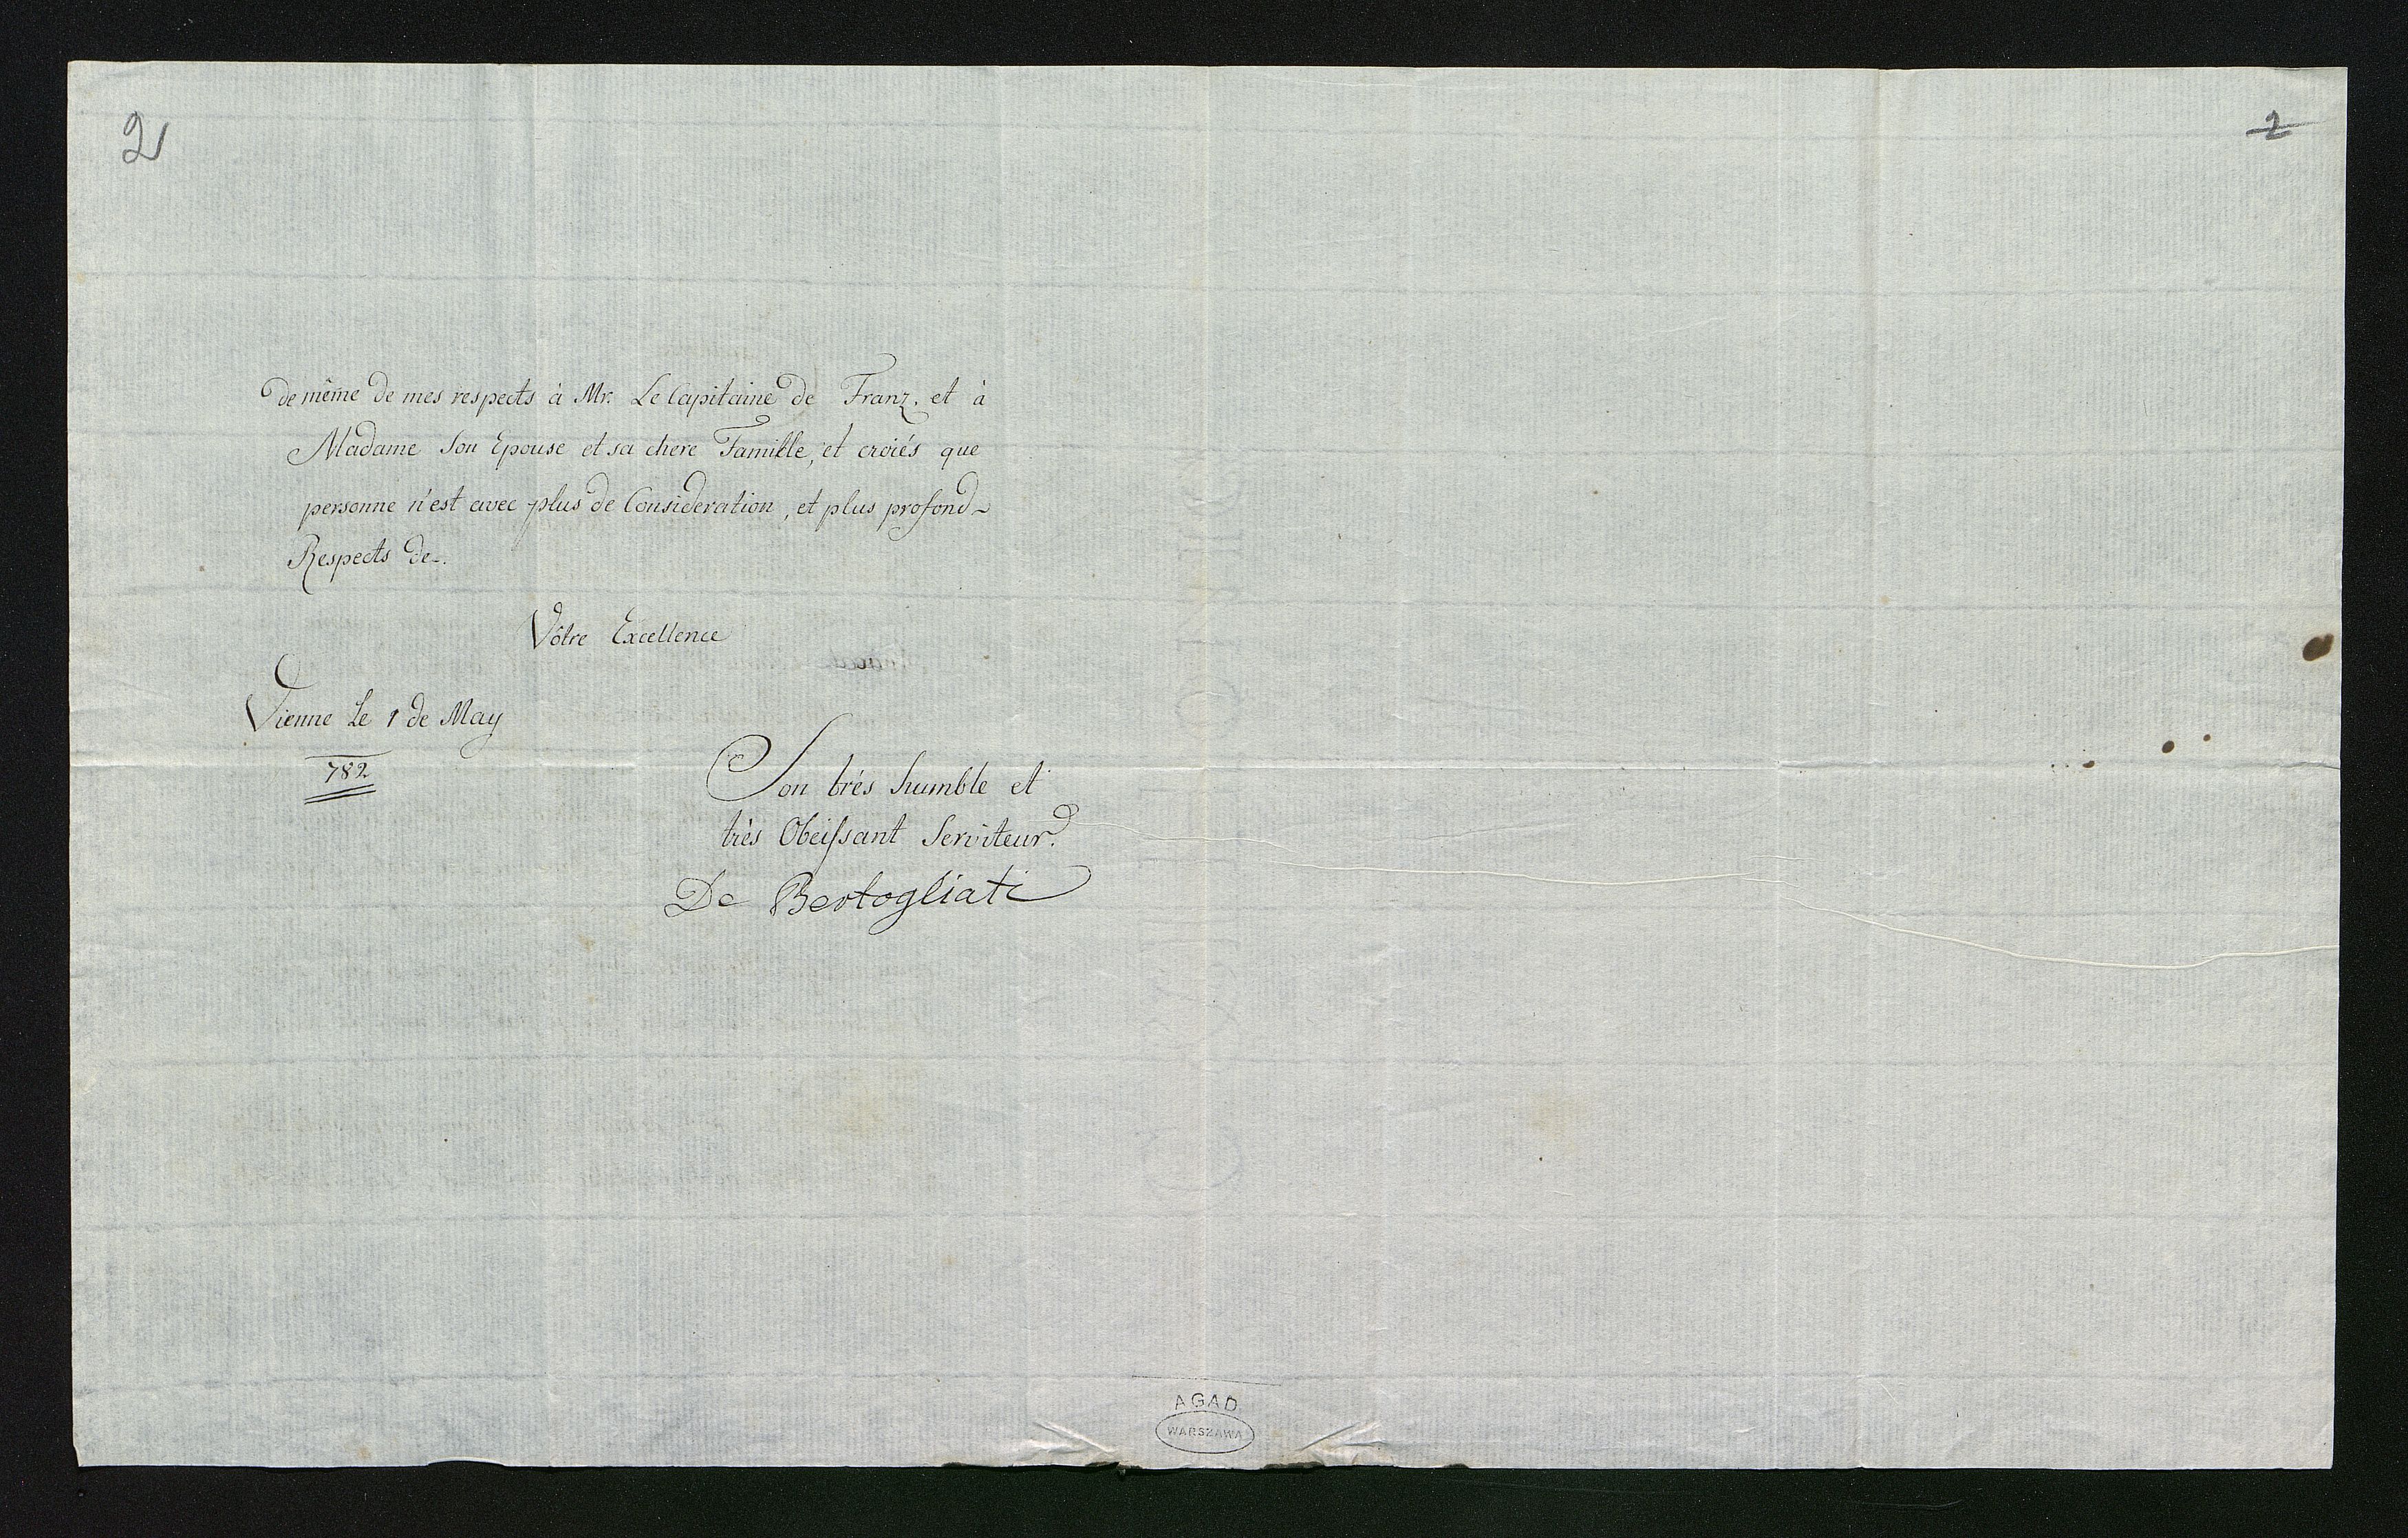 2
2
de même de mes respects à Mr. Le Capitaine de Franz, et à
Madame Son Epouse et sa chere Famille, et croiés que
personne n'est avec plus de Consideration, et plus profond
Respects de.
Vôtre Excellence
Vienne Le 1 de May
782
Son trés humble et
très Obeissant Serviteur.
De Bertogliati
AGAD
WARSZAWA